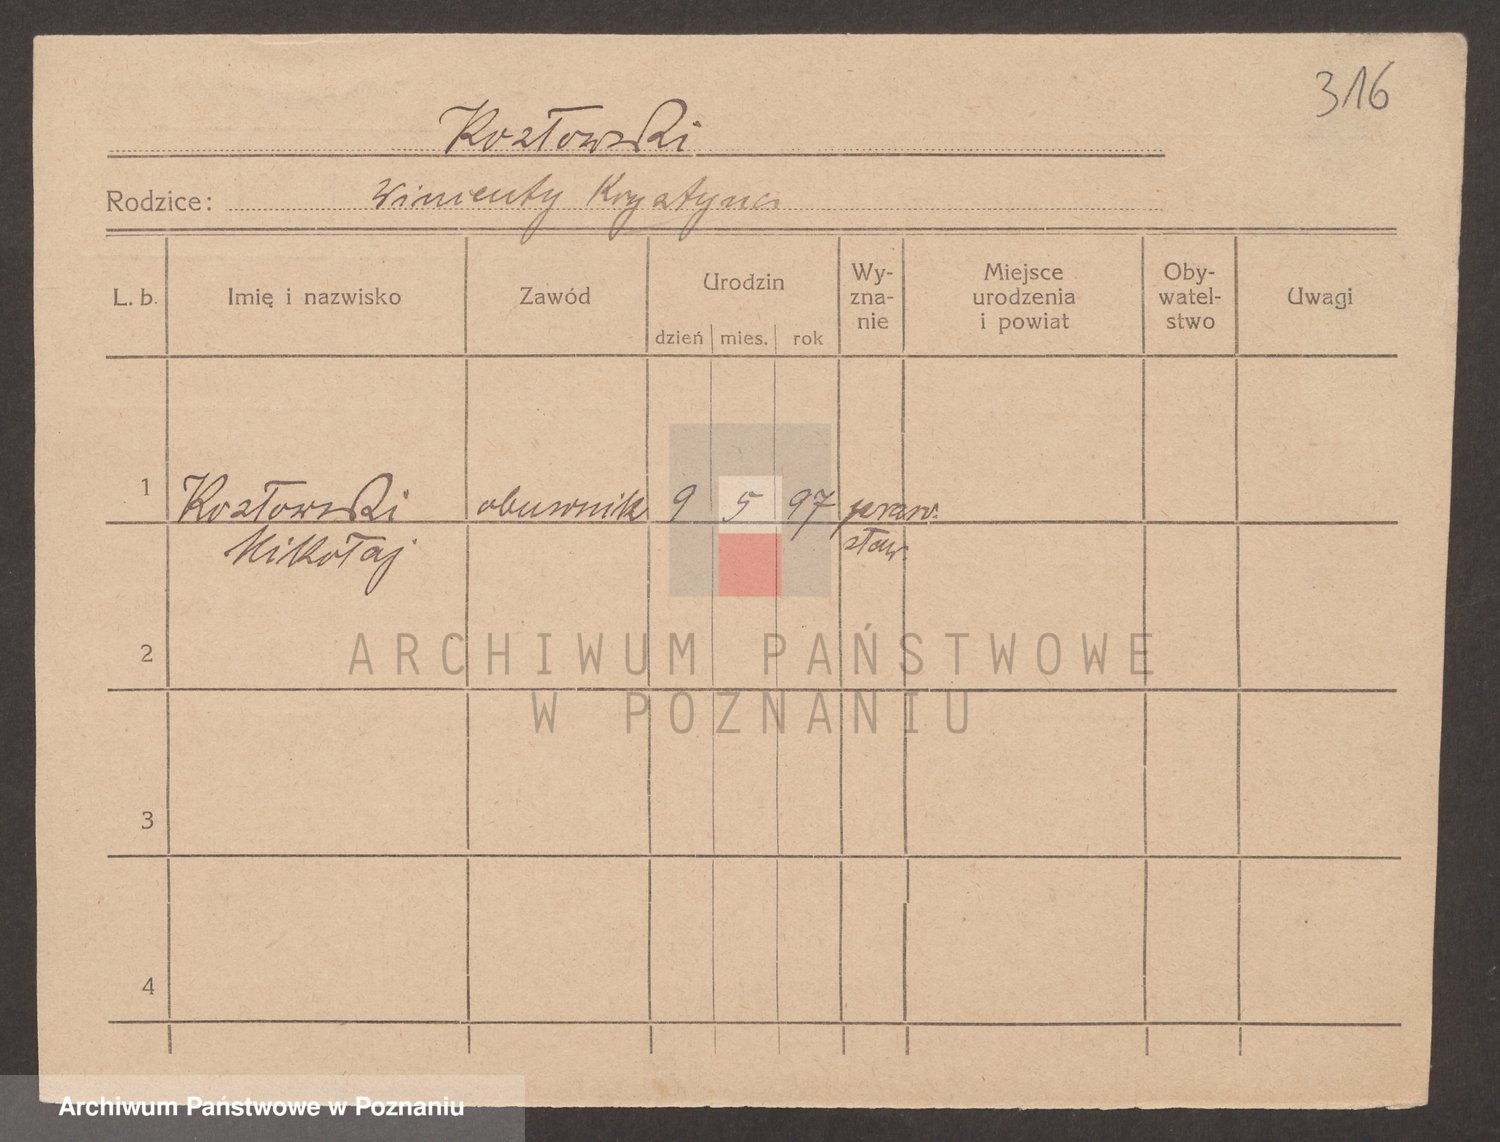 316
Kozłowski
Rodzice: Winienty Krystyna
L. b.
Imię i nazwisko
Zawód
Urodzin
dzień mies. rok
Wy-
zna-
nie
Miejsce
urodzenia
i powiat
Oby-
watel-
stwo
Uwagi
1 Kozłowski obuwnik 9 5 97 praw.
Mikołaj sław.
2
3
4
ARCHIWUM PAŃSTWOWE
W POZNANIU
Archiwum Państwowe w Poznaniu